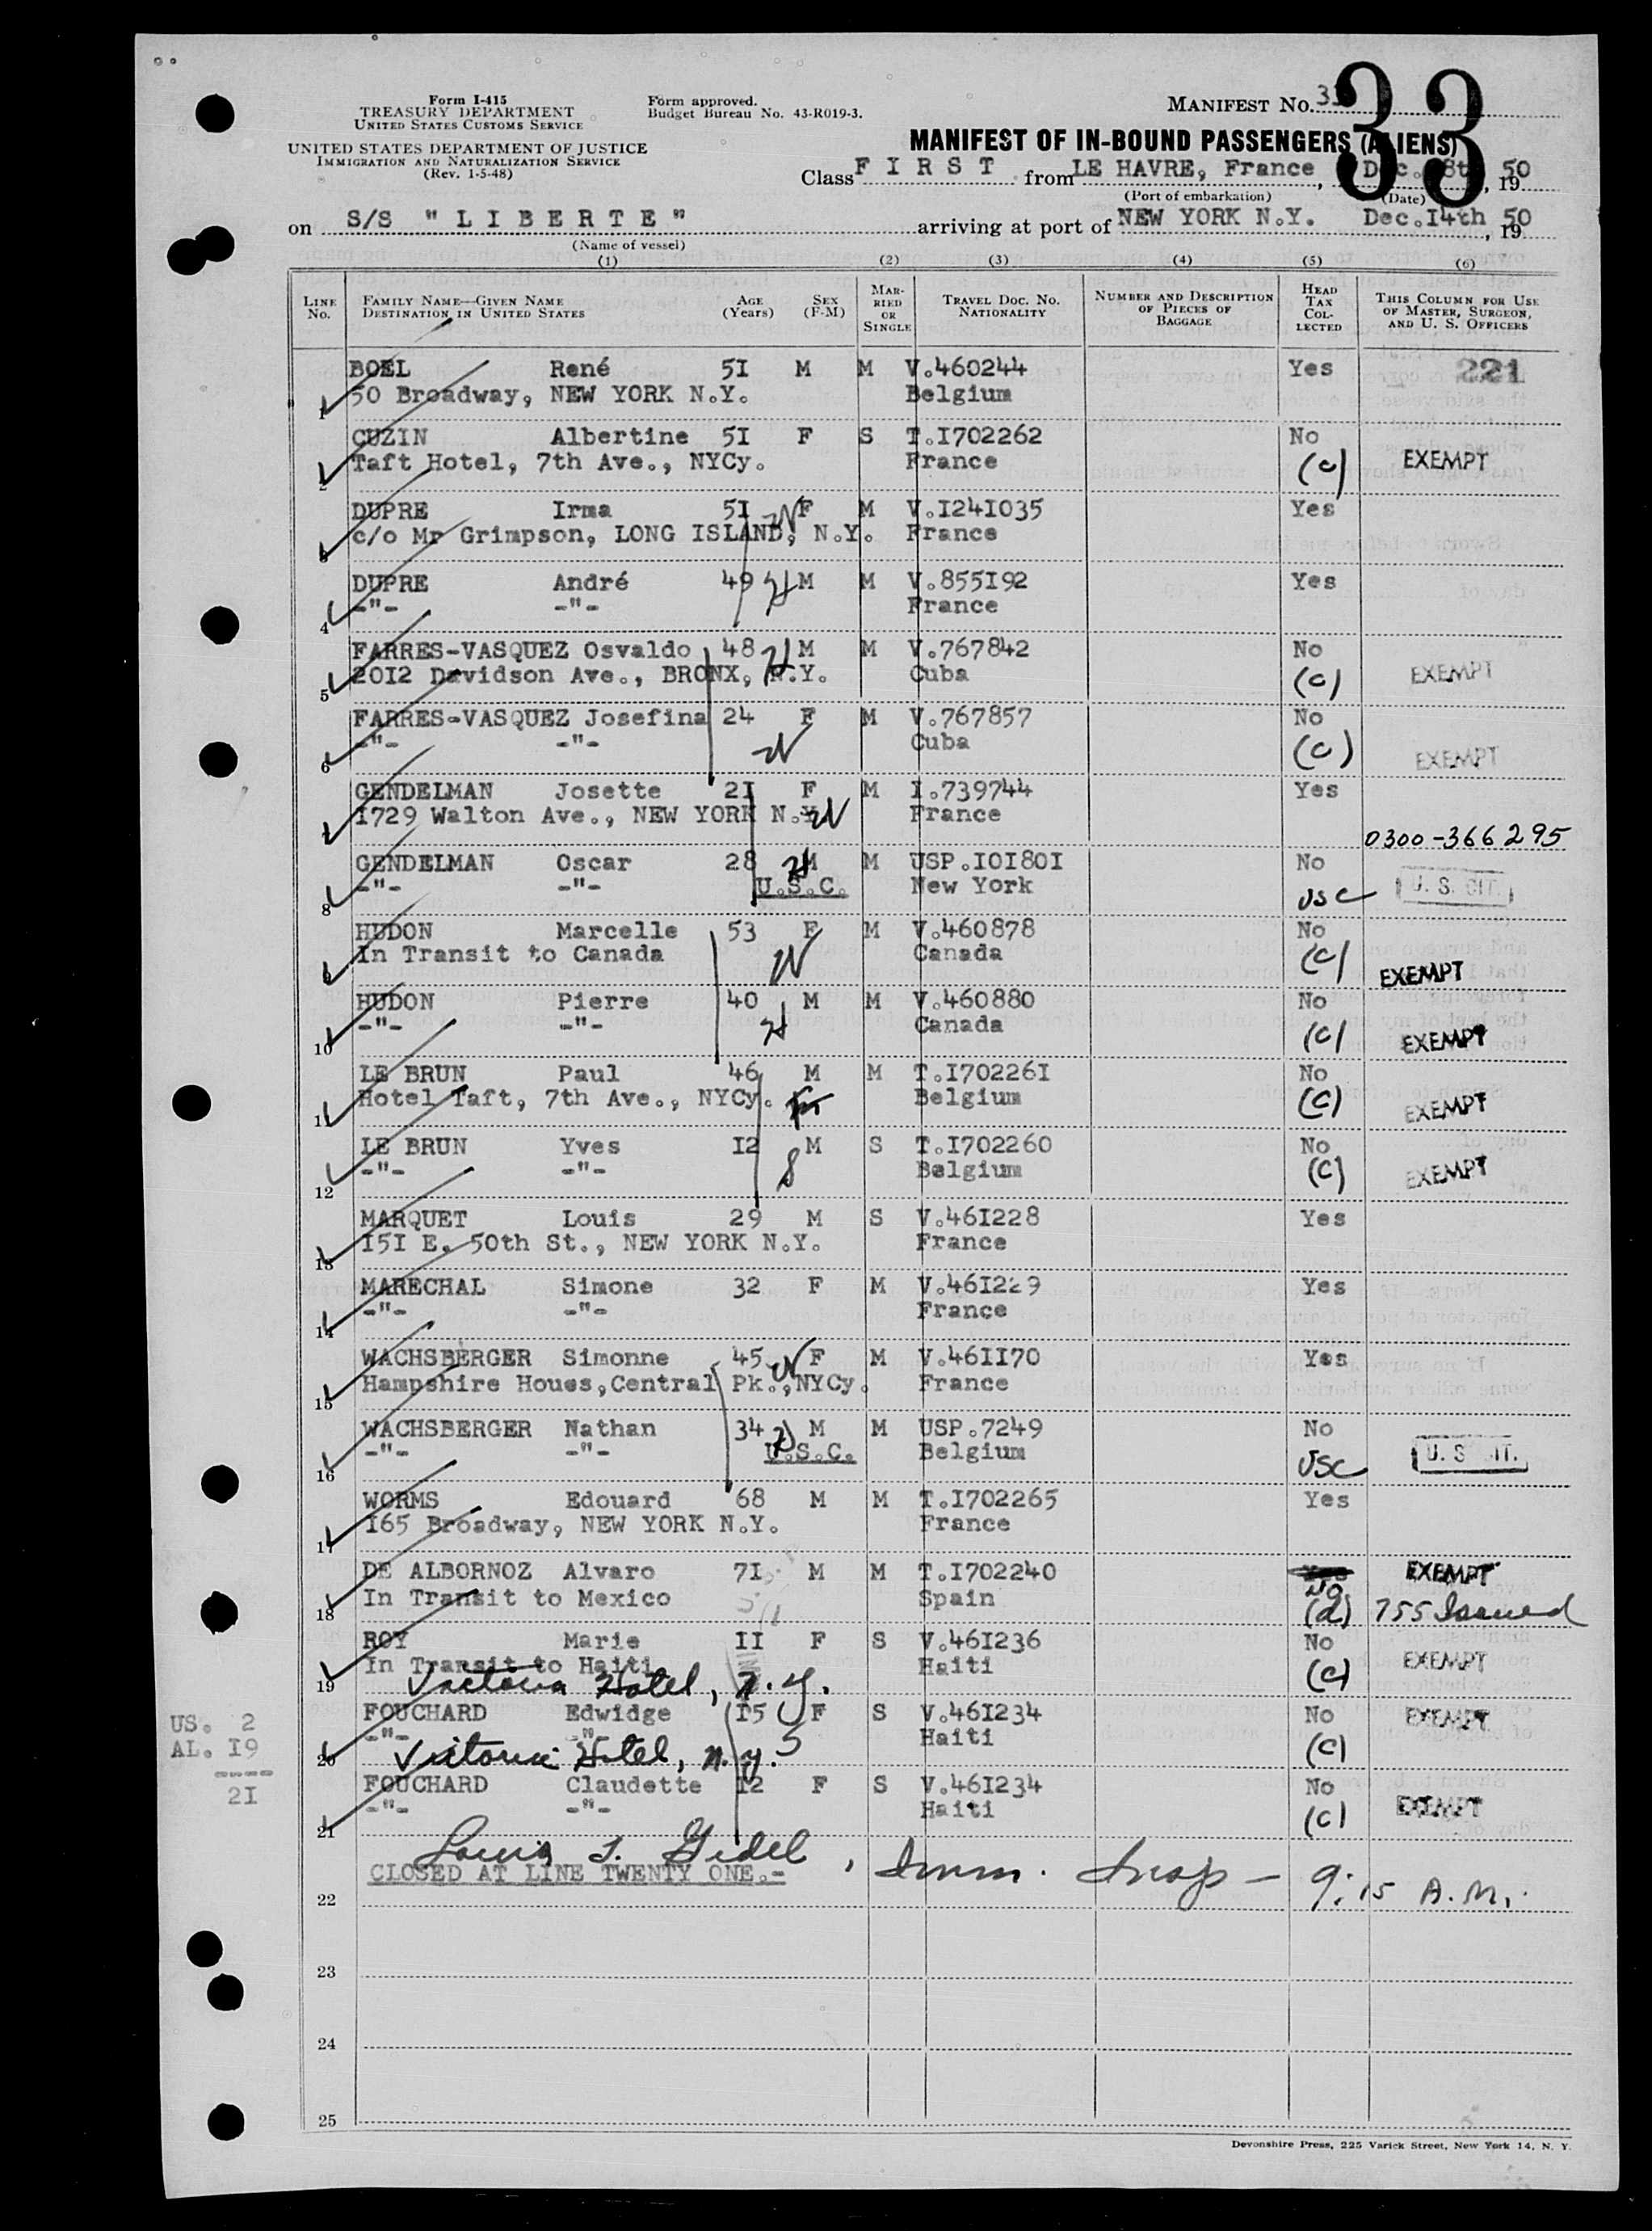 Form I-415
TREASURY DEPARTMENT
UNITED STATES CUSTOMS SERVICE
UNITED STATES DEPARTMENT OF JUSTICE
IMMIGRATION AND NATURALIZATION SERVICE
(Rev. 1-5-48)
Form approved.
Budget Bureau No. 43-R019-3.
MANIFEST NO. 33
MANIFEST OF IN-BOUND PASSENGERS (ALIENS)
Class F I R S T from LE HAVRE, France, Dec. 8th, 1950
(Port of embarkation) (Date)
on S/S " L I B E R T E " arriving at port of NEW YORK N.Y. Dec.I4th, 1950
(Name of vessel)
(1) (2) (3) (4) (5) (6)
LINE No. FAMILY NAME—GIVEN NAME DESTINATION IN UNITED STATES AGE (Years) SEX (F-M) MARRIED OR SINGLE TRAVEL DOC. NO. NATIONALITY NUMBER AND DESCRIPTION OF PIECES OF BAGGAGE HEAD TAX COLLECTED THIS COLUMN FOR USE OF MASTER, SURGEON, AND U. S. OFFICERS
BOEL René 5I M M V.460244 Yes 221
1 50 Broadway, NEW YORK N.Y. Belgium
CUZIN Albertine 5I F S T.I702262 No
2 Taft Hotel, 7th Ave., NYCy. France (c) EXEMPT
DUPRE Irma 5I F M V.I24I035 Yes
3 c/o Mr Grimpson, LONG ISLAND, N.Y. France
DUPRE André 49 M M V.855I92 Yes
4 -"- -"- France
FARRES-VASQUEZ Osvaldo 48 M M V.767842 No
5 20I2 Davidson Ave., BRONX, N.Y. Cuba (c) EXEMPT
FARRES-VASQUEZ Josefina 24 F M V.767857 No
6 -"- -"- Cuba (c) EXEMPT
GENDELMAN Josette 2I F M I.739744 Yes
7 I729 Walton Ave., NEW YORK N.Y. France
0300-366295
GENDELMAN Oscar 28 M M USP.IOI80I No
8 -"- -"- U.S.C. New York USC U. S. CIT.
HUDON Marcelle 53 F M V.460878 No
9 In Transit to Canada Canada (c) EXEMPT
HUDON Pierre 40 M M V.460880 No
10 -"- -"- Canada (c) EXEMPT
LE BRUN Paul 46 M M T.I70226I No
11 Hotel Taft, 7th Ave., NYCy. Belgium (c) EXEMPT
LE BRUN Yves I2 M S T.I702260 No
12 -"- -"- Belgium (c) EXEMPT
MARQUET Louis 29 M S V.46I228 Yes
13 I5I E. 50th St., NEW YORK N.Y. France
MARECHAL Simone 32 F M V.46I229 Yes
14 -"- -"- France
WACHSBERGER Simonne 45 F M V.46II70 Yes
15 Hampshire Houes,Central Pk.,NYCy. France
WACHSBERGER Nathan 34 M M USP.7249 No
16 -"- -"- U.S.C. Belgium USC U. S. CIT.
WORMS Edouard 68 M M T.I702265 Yes
17 I65 Broadway, NEW YORK N.Y. France
DE ALBORNOZ Alvaro 7I M M T.I702240 Yes EXEMPT
18 In Transit to Mexico Spain No (d) 755 Issued
ROY Marie II F S V.46I236 No
19 In Transit to Haiti Haiti (c) EXEMPT
Victoria Hotel, N.Y.
FOUCHARD Edwidge I5 F S V.46I234 No EXEMPT
20 -"- -"- Haiti (c)
Victoria Hotel, N.Y.
FOUCHARD Claudette I2 F S V.46I234 No
21 -"- -"- Haiti (c) EXEMPT
US. 2
AL. I9
----
2I
Louis J. Gidel, Imm. Insp - 9:15 A.M.
CLOSED AT LINE TWENTY ONE.-
22
23
24
25
Devonshire Press, 225 Varick Street, New York 14, N. Y.